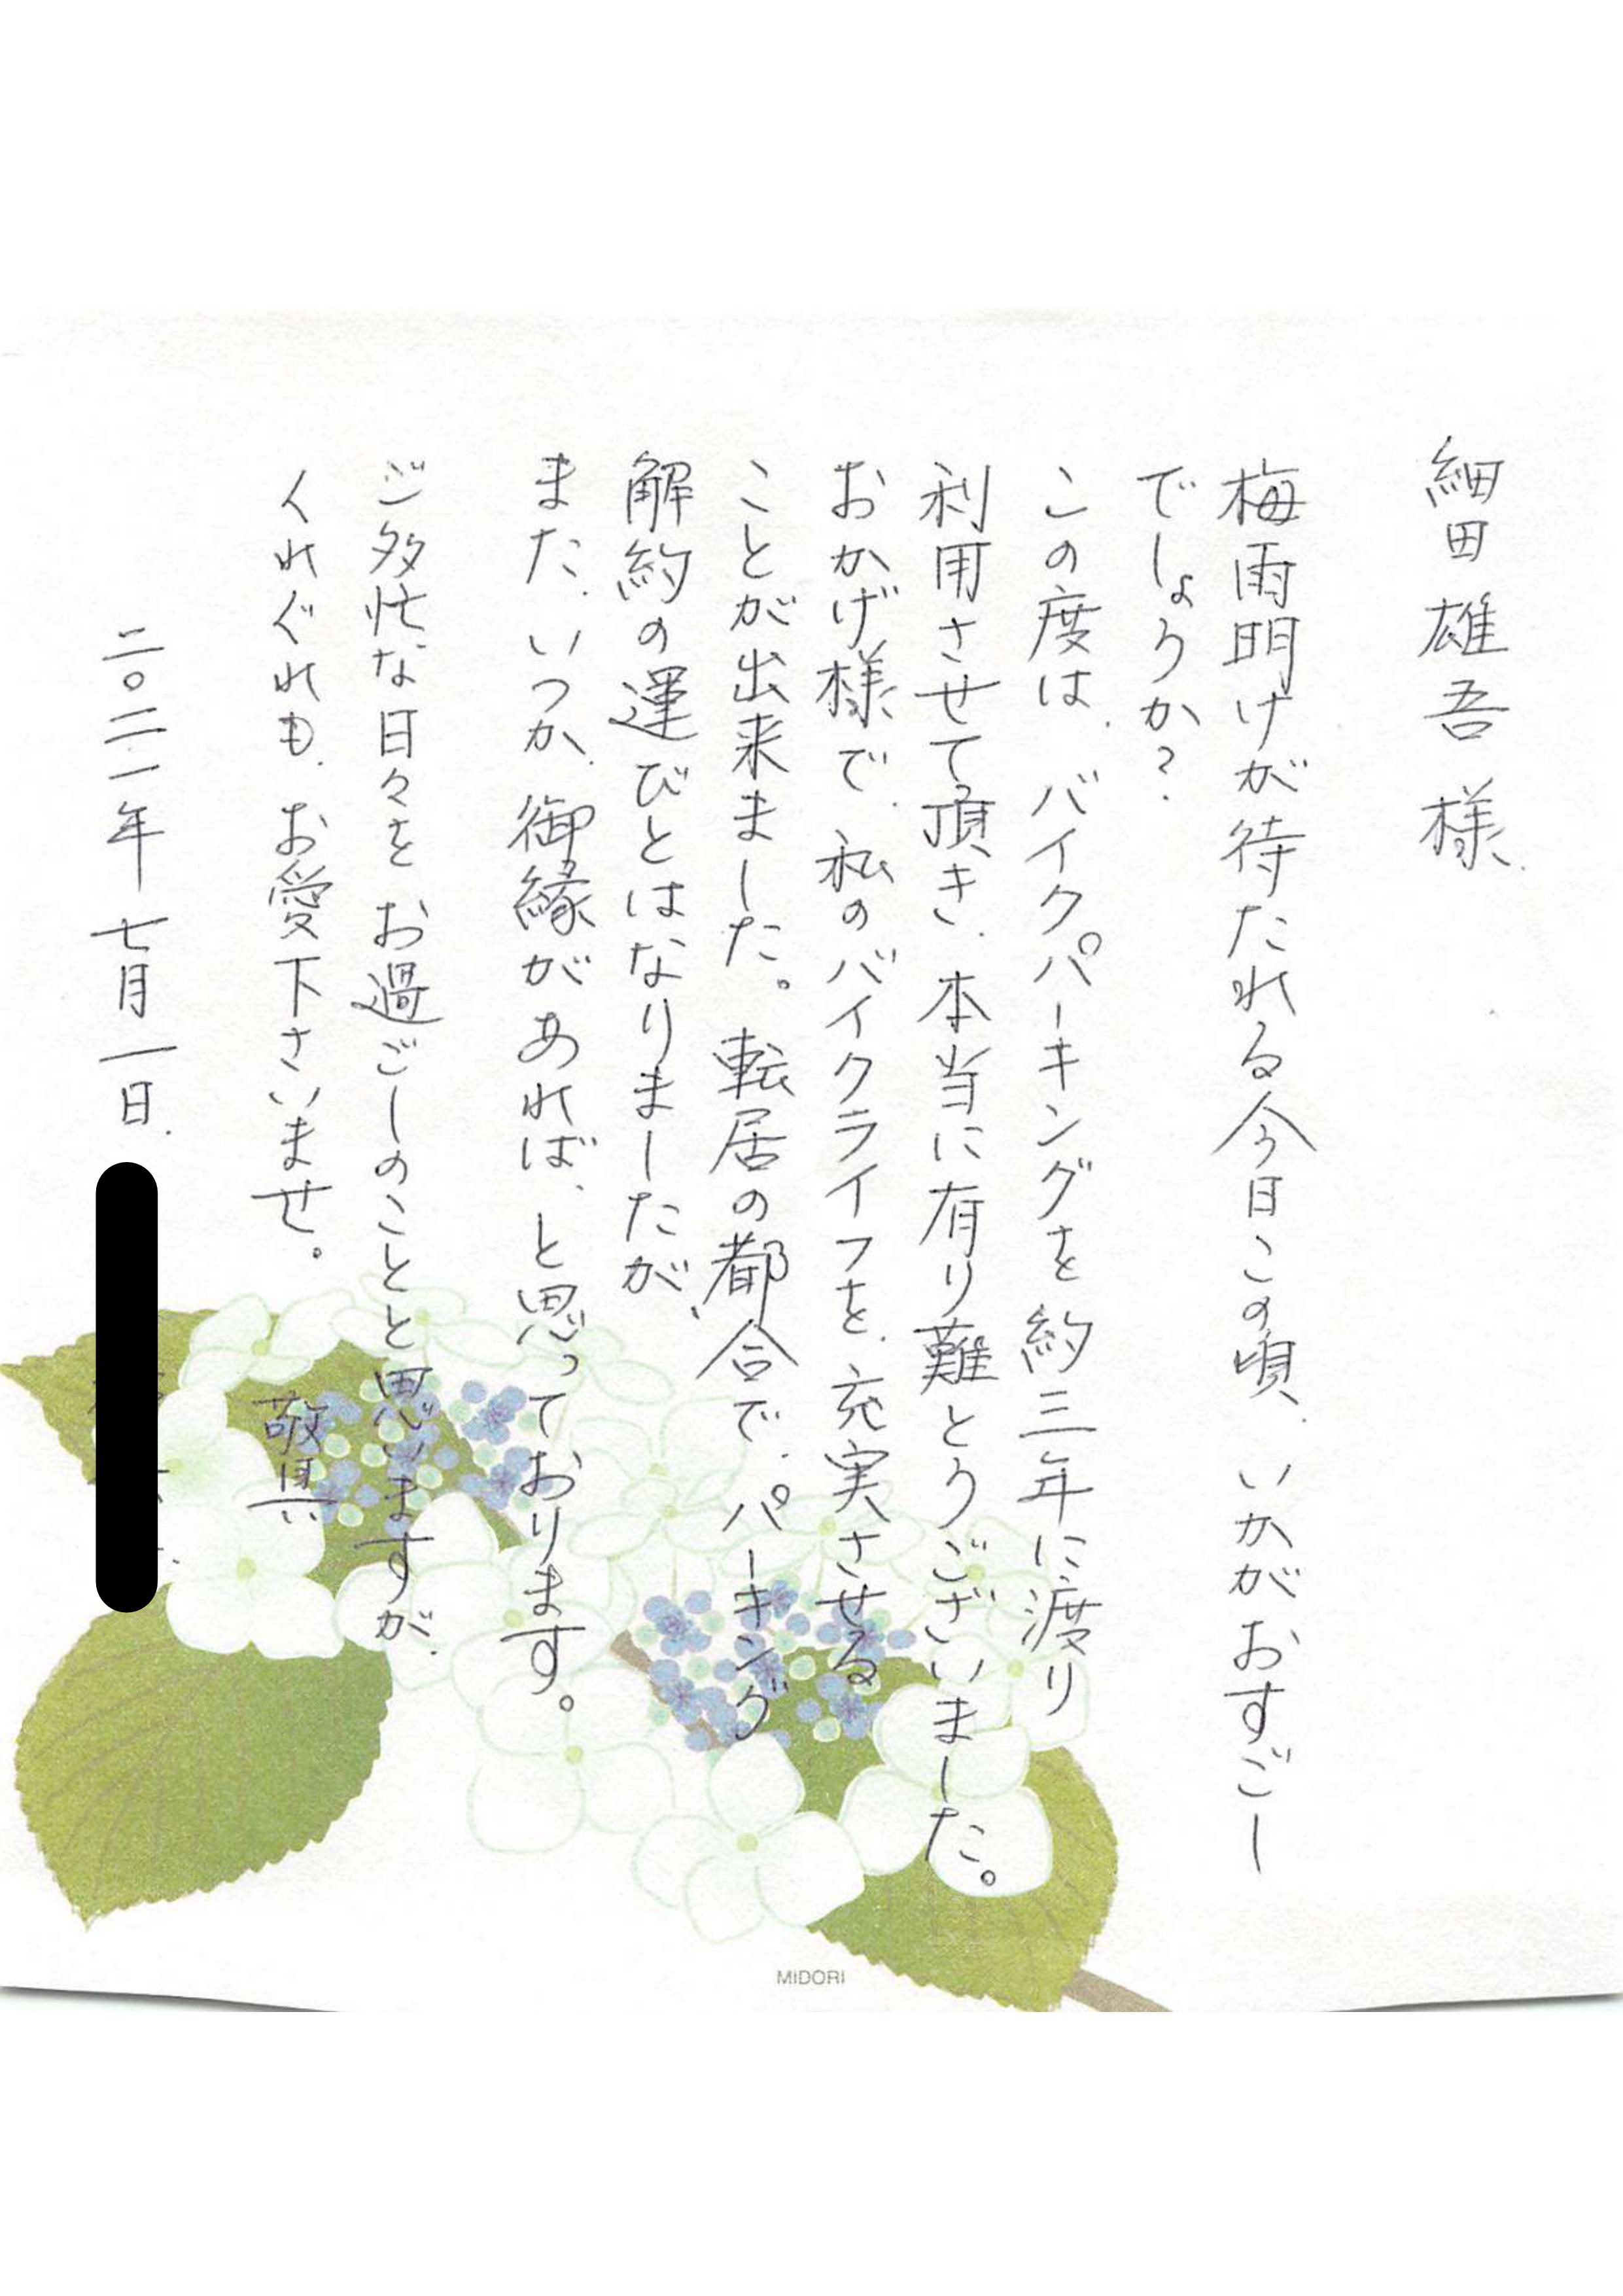 細田雄吾様
梅雨明けが待たれる今日この頃、いかがおすごし
でしょうか?
この度は、バイクパーキングを約三年に渡り
利用させて頂き、本当に有り難とうございました。
おかげ様で、私のバイクライフを、充実させる
ことが出来ました。転居の都合で、パーキング
解約の運びとはなりましたが、
また、いつか、御縁があれば、と思っております。
ご多忙な日々をお過ごしのことと思いますが、
くれぐれも、お愛下さいませ。
敬具
二〇二一年七月一日、
MIDORI